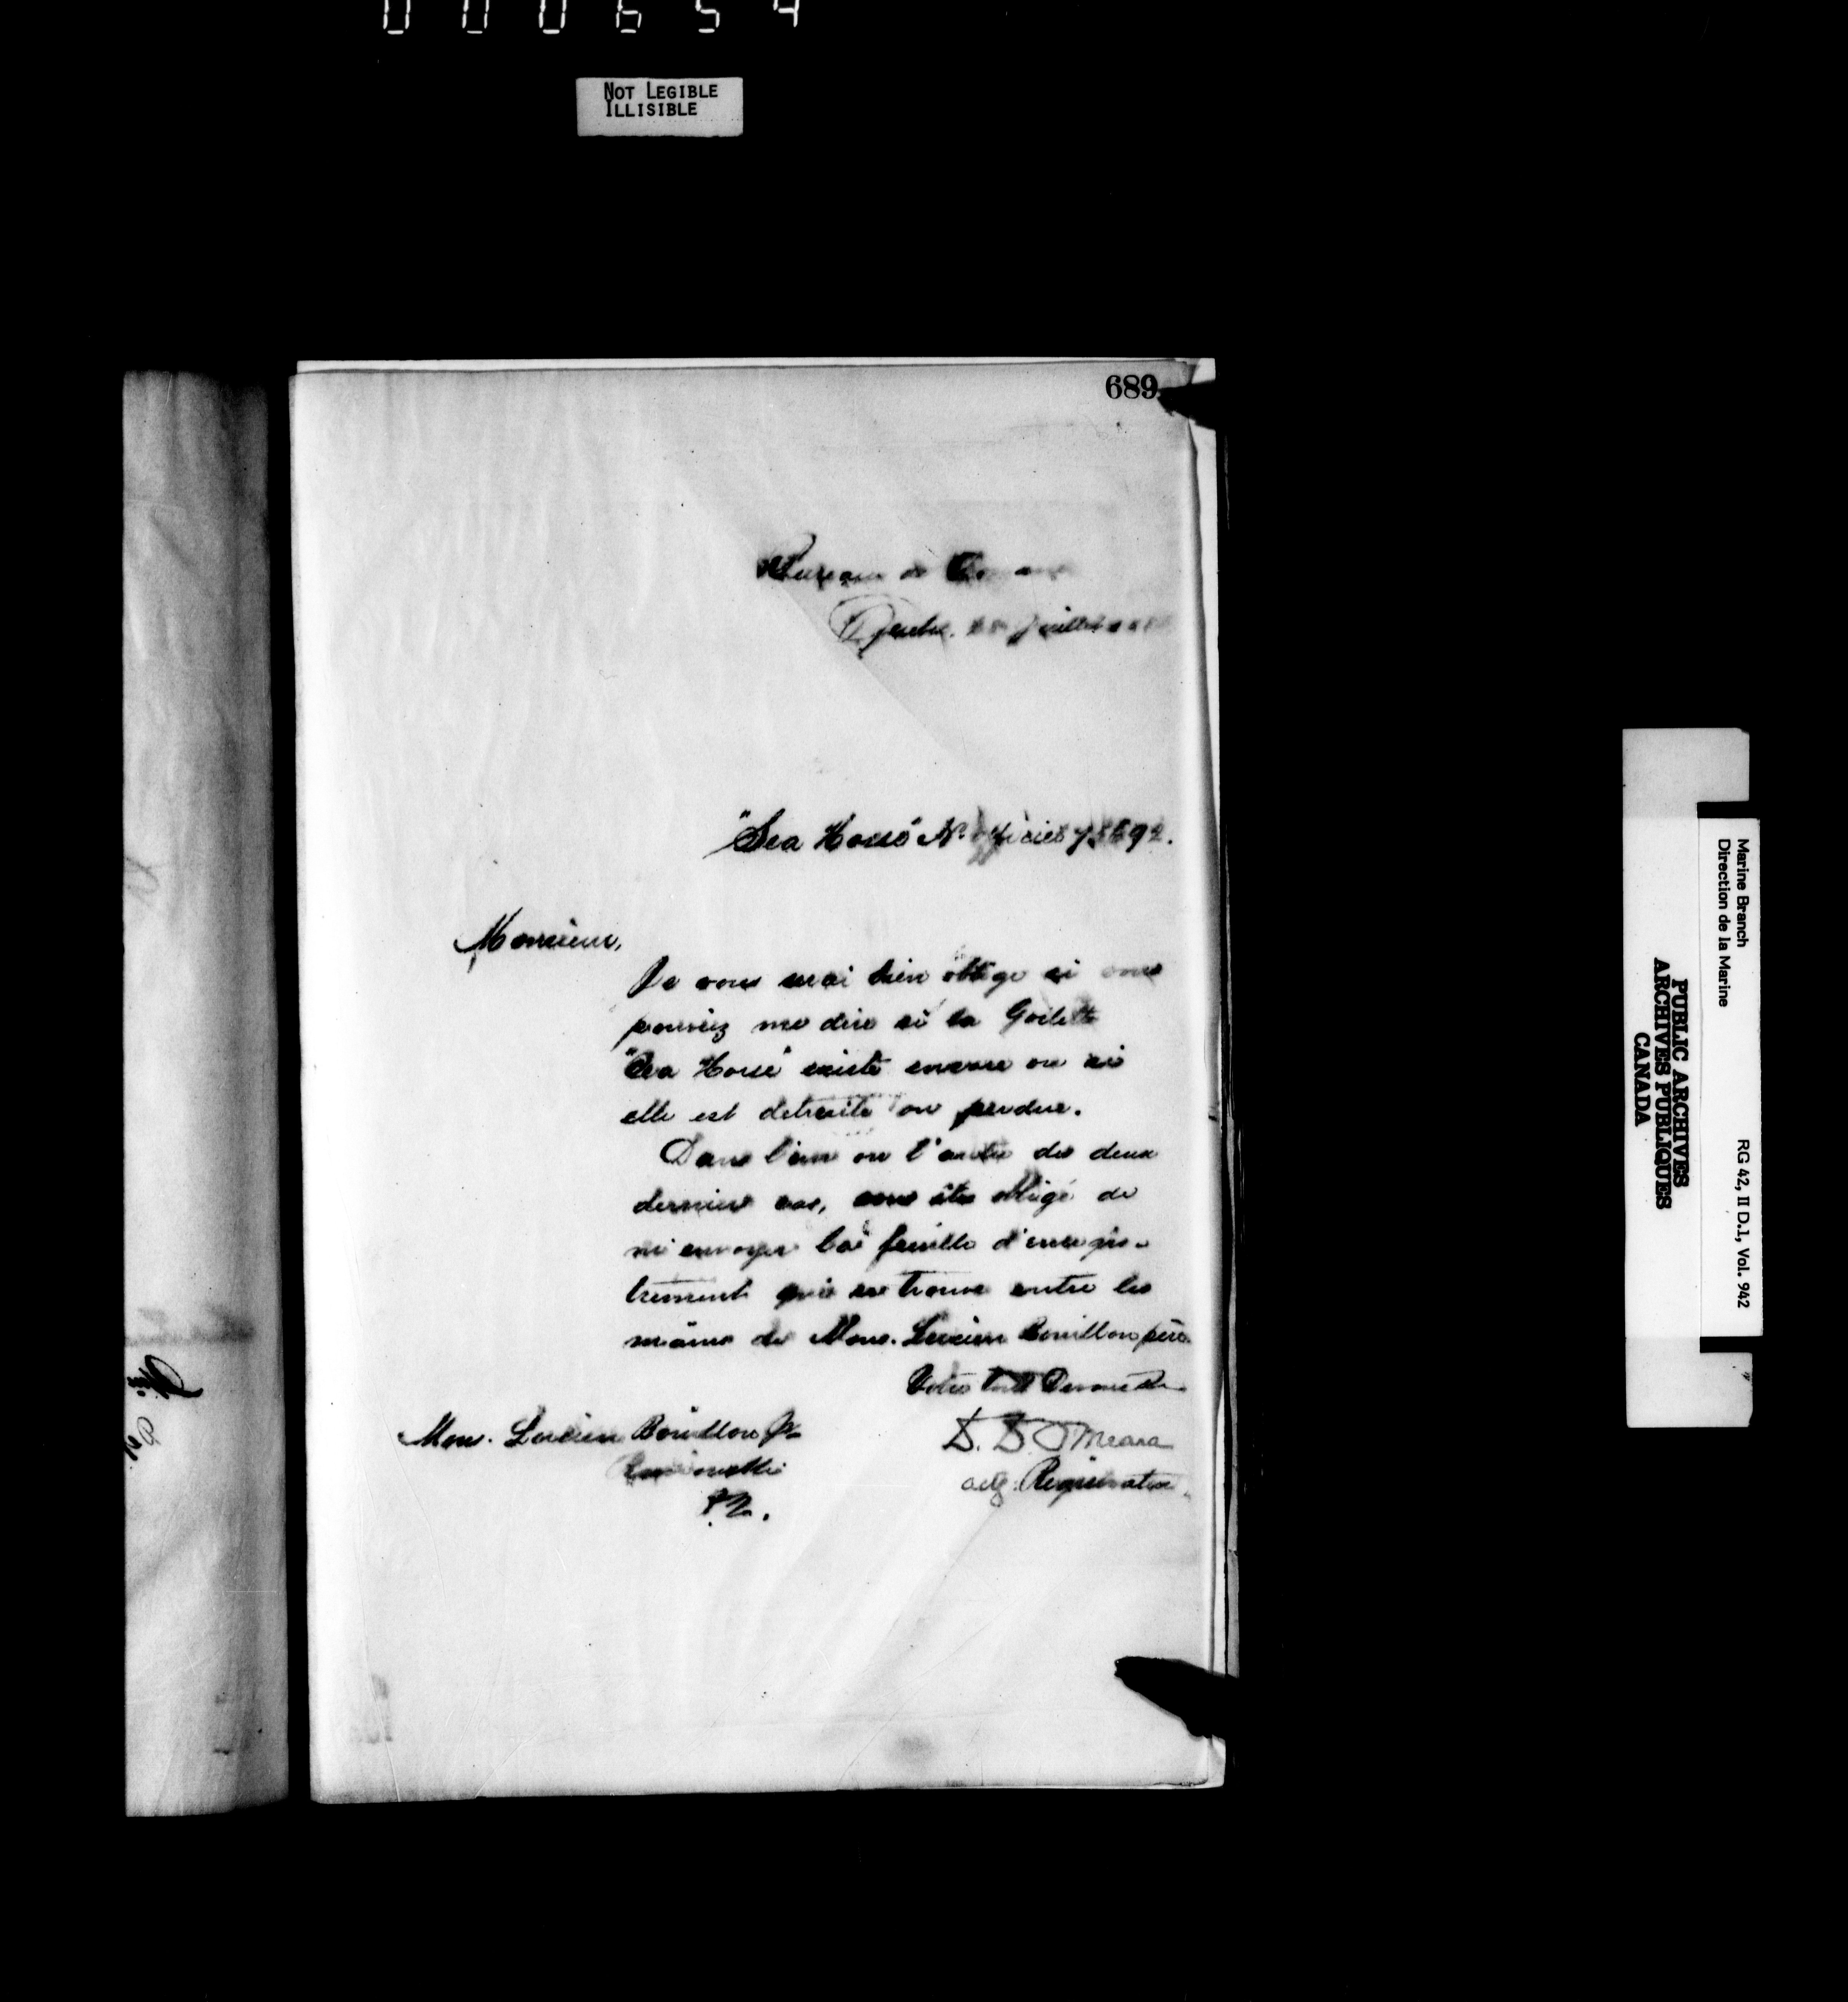 000654
NOT LEGIBLE
ILLISIBLE
689
Bureau de
Quebec. Juillet
"Sea Horse" No. officiel 75692.
Monsieur,
Je vous serai bien obligé si vous
pouviez me dire si la Goelette
"Sea Horse" existe encore ou si
elle est detruite ou perdue.
Dans l'un ou l'autre des deux
dernier cas, vous êtes obligé de
m'envoyer la feuille d'enregis-
trement qui se trouve entre les
mains de Mons. Lucien Bouillon père
Votre tout Devoué
D. D. O'Meara
actg. Registrateur
Mons. Lucien Bouillon Jr
P.Q.
Marine Branch
Direction de la Marine
RG 42, II D.1, Vol. 942
PUBLIC ARCHIVES
ARCHIVES PUBLIQUES
CANADA